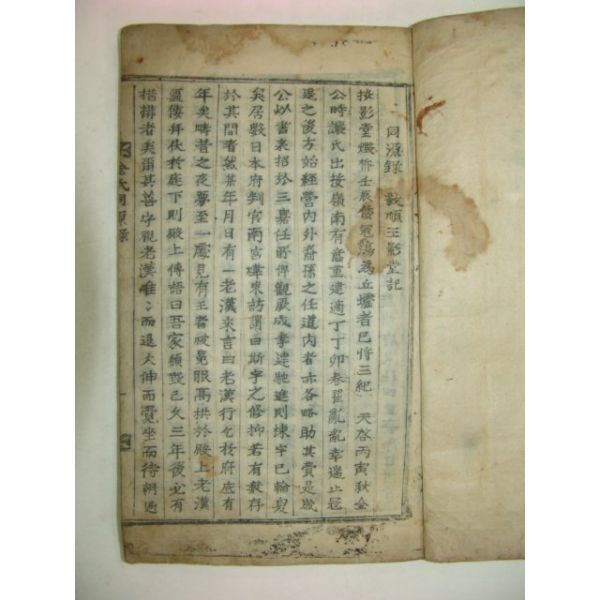 同源錄 敬順王影堂記
按影堂燬於壬辰倭寇蕩為丘墟者已將三紀 天啓丙寅秋金
公時讓氏出按嶺南有意重建適丁丁卯春亂亂幸遄止冦
退之後方始經營內外裔孫之任道內者亦各略助其費是歲
公以書來招於三嘉任所俾觀厥成孝建馳進則棟宇已輪奐
矣居數日本府判官南宮來訪謂曰斯宇之修抑若有數存
於其間者然某年月日有一老漢來言曰老漢行乞於府底有
年矣疇昔之夜夢至一處見有王者被冕服高拱於殿上老漢
傴僂拜伏於庭下則殿上傳語曰吾家頹毀已久三年後必有
構者矣爾其善守視老漢唯〻而退欠伸而覺坐而待朝過
金氏同源錄